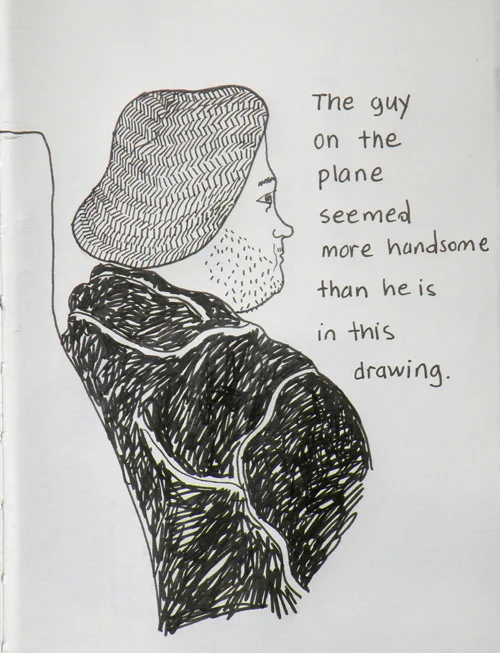 The guy
on the
plane
seemed
more handsome
than he is
in this
drawing.